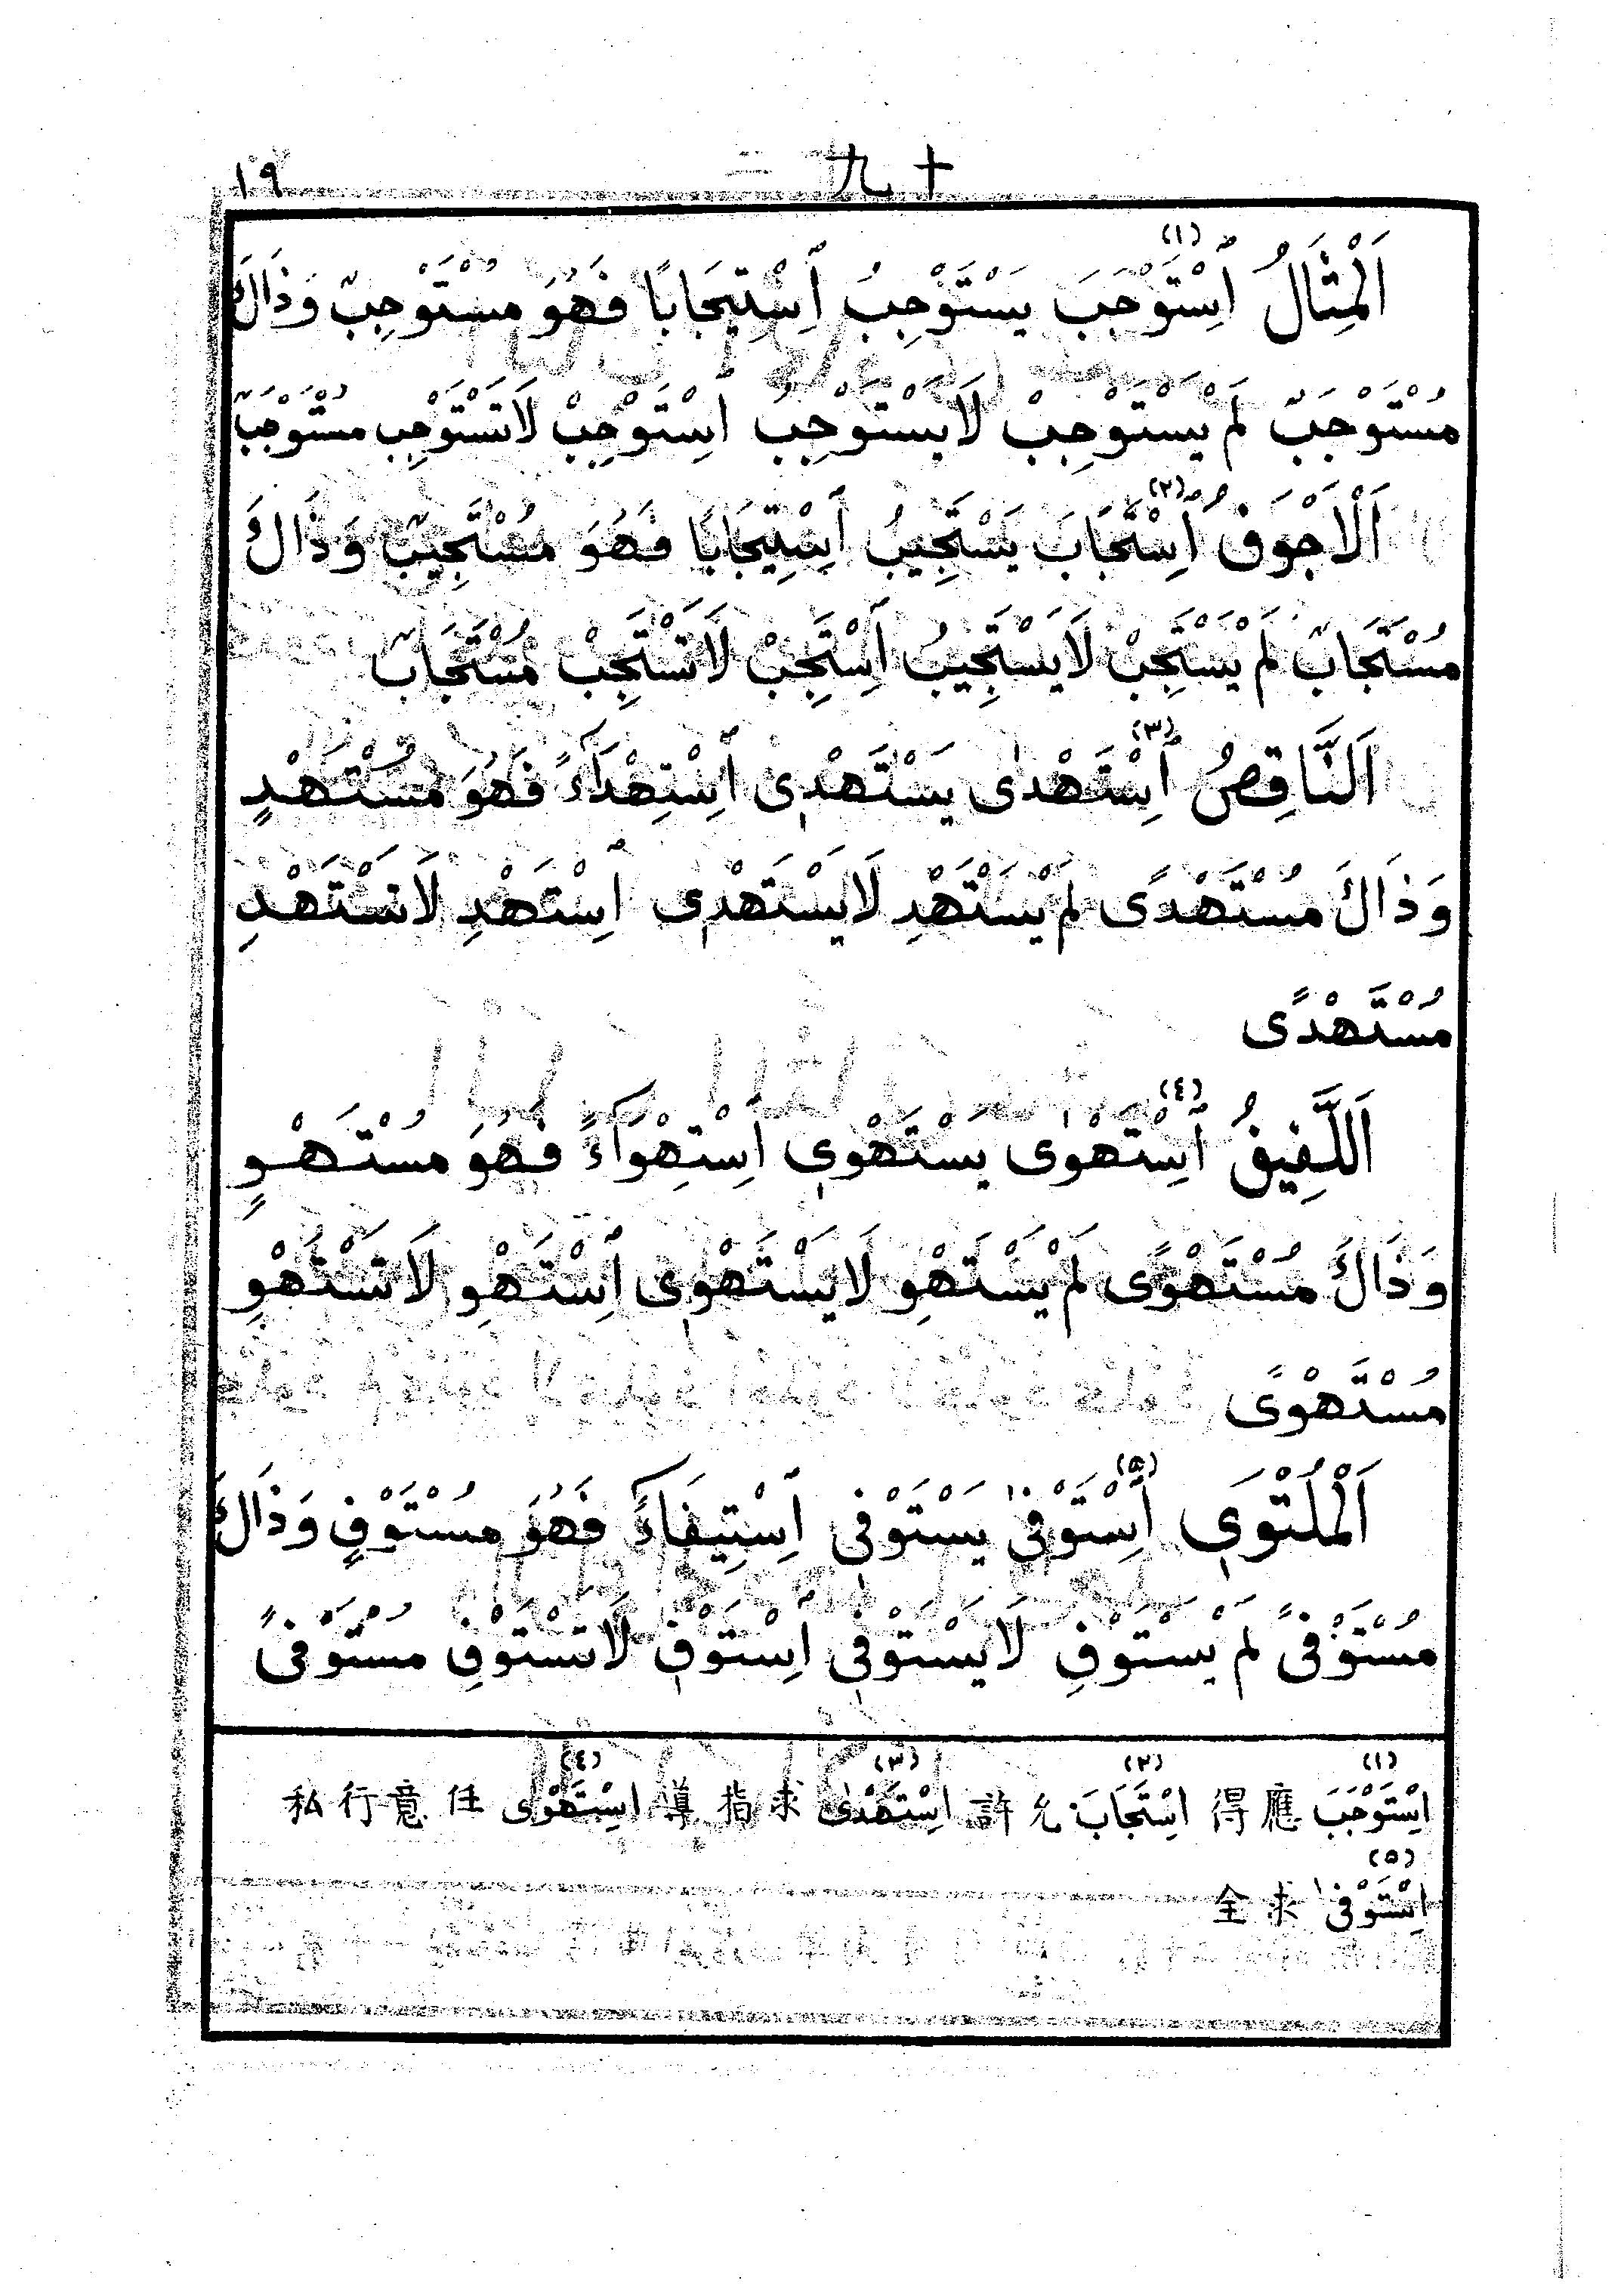 十九 ١٩
اَلْمِثَالُ (١) اِسْتَوْجَبَ يَسْتَوْجِبُ اِسْتِيجَابًا فَهُوَ مُسْتَوْجِبٌ وَذَاكَ
مُسْتَوْجَبٌ لَمْ يَسْتَوْجِبْ لَايَسْتَوْجِبُ اِسْتَوْجِبْ لَاتَسْتَوْجِبْ مُسْتَوْجَبٌ
اَلْاَجْوَفُ (٢) اِسْتَجَابَ يَسْتَجِيبُ اِسْتِيجَابًا فَهُوَ مُسْتَجِيبٌ وَذَاكَ
مُسْتَجَابٌ لَمْ يَسْتَجِبْ لَايَسْتَجِيبُ اِسْتَجِبْ لَاتَسْتَجِبْ مُسْتَجَابٌ
اَلنَّاقِصُ (٣) اِسْتَهْدٰى يَسْتَهْدِى اِسْتِهْدَآءً فَهُوَ مُسْتَهْدٍ
وَذَاكَ مُسْتَهْدًى لَمْ يَسْتَهْدِ لَايَسْتَهْدِى اِسْتَهْدِ لَاتَسْتَهْدِ
مُسْتَهْدًى
اَللَّفِيفُ (٤) اِسْتَهْوٰى يَسْتَهْوِى اِسْتِهْوَآءً فَهُوَ مُسْتَهْوٍ
وَذَاكَ مُسْتَهْوًى لَمْ يَسْتَهْوِ لَايَسْتَهْوِى اِسْتَهْوِ لَاتَسْتَهْوِ
مُسْتَهْوًى
اَلْمُلْتَوِى (٥) اِسْتَوْفٰى يَسْتَوْفِى اِسْتِيفَآءً فَهُوَ مُسْتَوْفٍ وَذَاكَ
مُسْتَوْفًى لَمْ يَسْتَوْفِ لَايَسْتَوْفِى اِسْتَوْفِ لَاتَسْتَوْفِ مُسْتَوْفًى
(١) اِسْتَوْجَبَ 應得 (٢) اِسْتَجَابَ 允許 (٣) اِسْتَهْدٰى 求指導 (٤) اِسْتَهْوٰى 任意行私
(٥) اِسْتَوْفٰى 求全